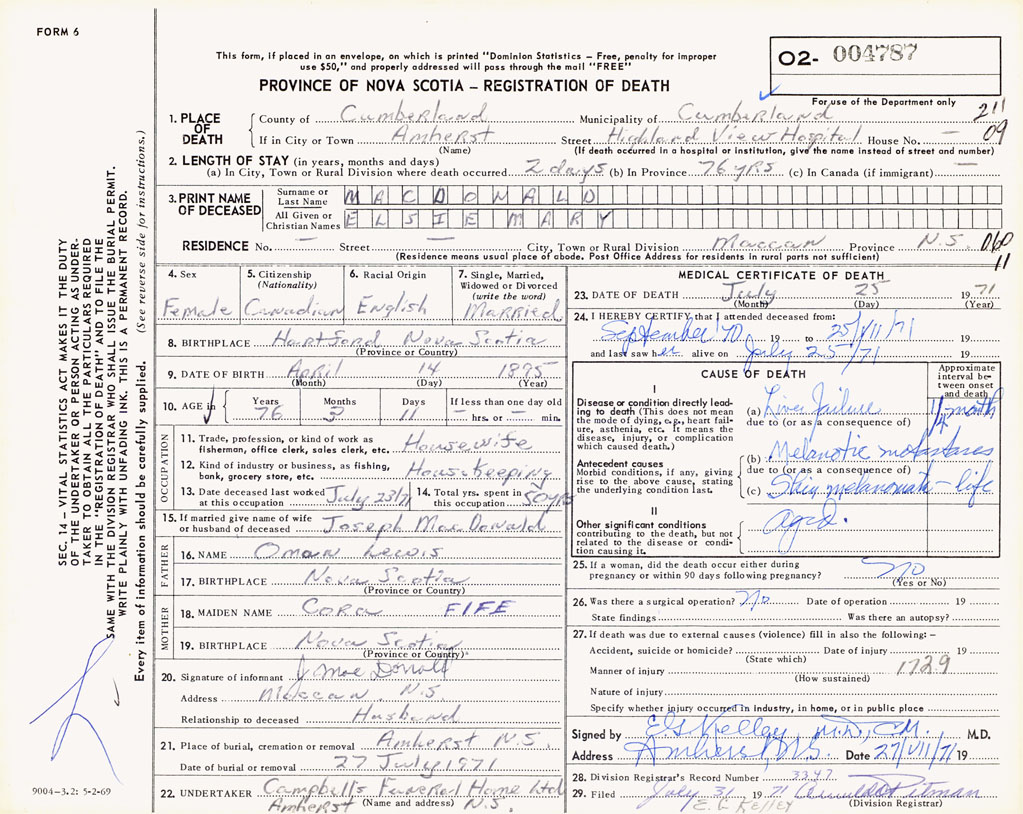 FORM 6
This form, if placed in an envelope, on which is printed "Dominion Statistics – Free, penalty for improper
use $50," and properly addressed will pass through the mail "FREE"
02- 004787
PROVINCE OF NOVA SCOTIA – REGISTRATION OF DEATH
For use of the Department only
1. PLACE OF DEATH
County of Cumberland Municipality of Cumberland 211
If in City or Town Amherst Street Highland View Hospital House No. — 09
(Name) (If death occurred in a hospital or institution, give the name instead of street and number)
2. LENGTH OF STAY (in years, months and days)
(a) In City, Town or Rural Division where death occurred 2 days (b) In Province 76 yrs (c) In Canada (if immigrant) —
3. PRINT NAME OF DECEASED
Surname or Last Name MACDONALD
All Given or Christian Names ELSIE MARY
RESIDENCE No. — Street — City, Town or Rural Division Maccan Province N.S. 060
(Residence means usual place of abode. Post Office Address for residents in rural parts not sufficient) 11
4. Sex
Female
5. Citizenship
(Nationality)
Canadian
6. Racial Origin
English
7. Single, Married,
Widowed or Divorced
(write the word)
Married
8. BIRTHPLACE Hartford Nova Scotia
(Province or Country)
9. DATE OF BIRTH April 14 1895
(Month) (Day) (Year)
10. AGE in
Years Months Days If less than one day old
76 3 11 — hrs. or — min.
OCCUPATION
11. Trade, profession, or kind of work as
fisherman, office clerk, sales clerk, etc. Housewife
12. Kind of industry or business, as fishing,
bank, grocery store, etc. Housekeeping
13. Date deceased last worked
at this occupation July 23/71
14. Total yrs. spent in
this occupation 50 yrs
15. If married give name of wife
or husband of deceased Joseph MacDonald
FATHER
16. NAME Oman Lewis
17. BIRTHPLACE Nova Scotia
(Province or Country)
MOTHER
18. MAIDEN NAME Cora FIFE
19. BIRTHPLACE Nova Scotia
(Province or Country)
20. Signature of informant J MacDonald
Address Maccan, N.S
Relationship to deceased Husband
21. Place of burial, cremation or removal Amherst N.S.
Date of burial or removal 27 July 1971
22. UNDERTAKER Campbells Funeral Home Ltd
Amherst (Name and address) N.S.
MEDICAL CERTIFICATE OF DEATH
23. DATE OF DEATH July 25 1971
(Month) (Day) (Year)
24. I HEREBY CERTIFY that I attended deceased from:
September '70 19 to 25/VII/71 19
and last saw her alive on July 25/71 19
CAUSE OF DEATH
Approximate
interval be-
tween onset
and death
I
Disease or condition directly lead-
ing to death (This does not mean
the mode of dying, e.g., heart fail-
ure, asthenia, etc. It means the
disease, injury, or complication
which caused death.)
(a) Liver failure 1/4 month
due to (or as a consequence of)
Antecedent causes
Morbid conditions, if any, giving
rise to the above cause, stating
the underlying condition last.
(b) Melanotic metastases
due to (or as a consequence of)
(c) Skin melanomata - life
II
Other significant conditions
contributing to the death, but not
related to the disease or condi-
tion causing it.
aged.
25. If a woman, did the death occur either during
pregnancy or within 90 days following pregnancy? No
(Yes or No)
26. Was there a surgical operation? No Date of operation 19
State findings Was there an autopsy?
27. If death was due to external causes (violence) fill in also the following: –
Accident, suicide or homicide? Date of injury 19
(State which)
Manner of injury 1729
(How sustained)
Nature of injury
Specify whether injury occurred in industry, in home, or in public place
Signed by EG Kelley M.D., C.M. M.D.
Address Amherst, N.S. Date 27/VII/71 19
28. Division Registrar's Record Number 3347
29. Filed July 31 1971 Pitman
E. G. Kelley (Division Registrar)
SEC. 14 – VITAL STATISTICS ACT MAKES IT THE DUTY
OF THE UNDERTAKER OR PERSON ACTING AS UNDER-
TAKER TO OBTAIN ALL THE PARTICULARS REQUIRED
IN THE "REGISTRATION OF DEATH" AND TO FILE THE
SAME WITH THE DIVISION REGISTRAR WHO SHALL ISSUE THE BURIAL PERMIT.
WRITE PLAINLY WITH UNFADING INK. THIS IS A PERMANENT RECORD.
Every item of information should be carefully supplied. (See reverse side for instructions.)
9004-3.2: 5-2-69